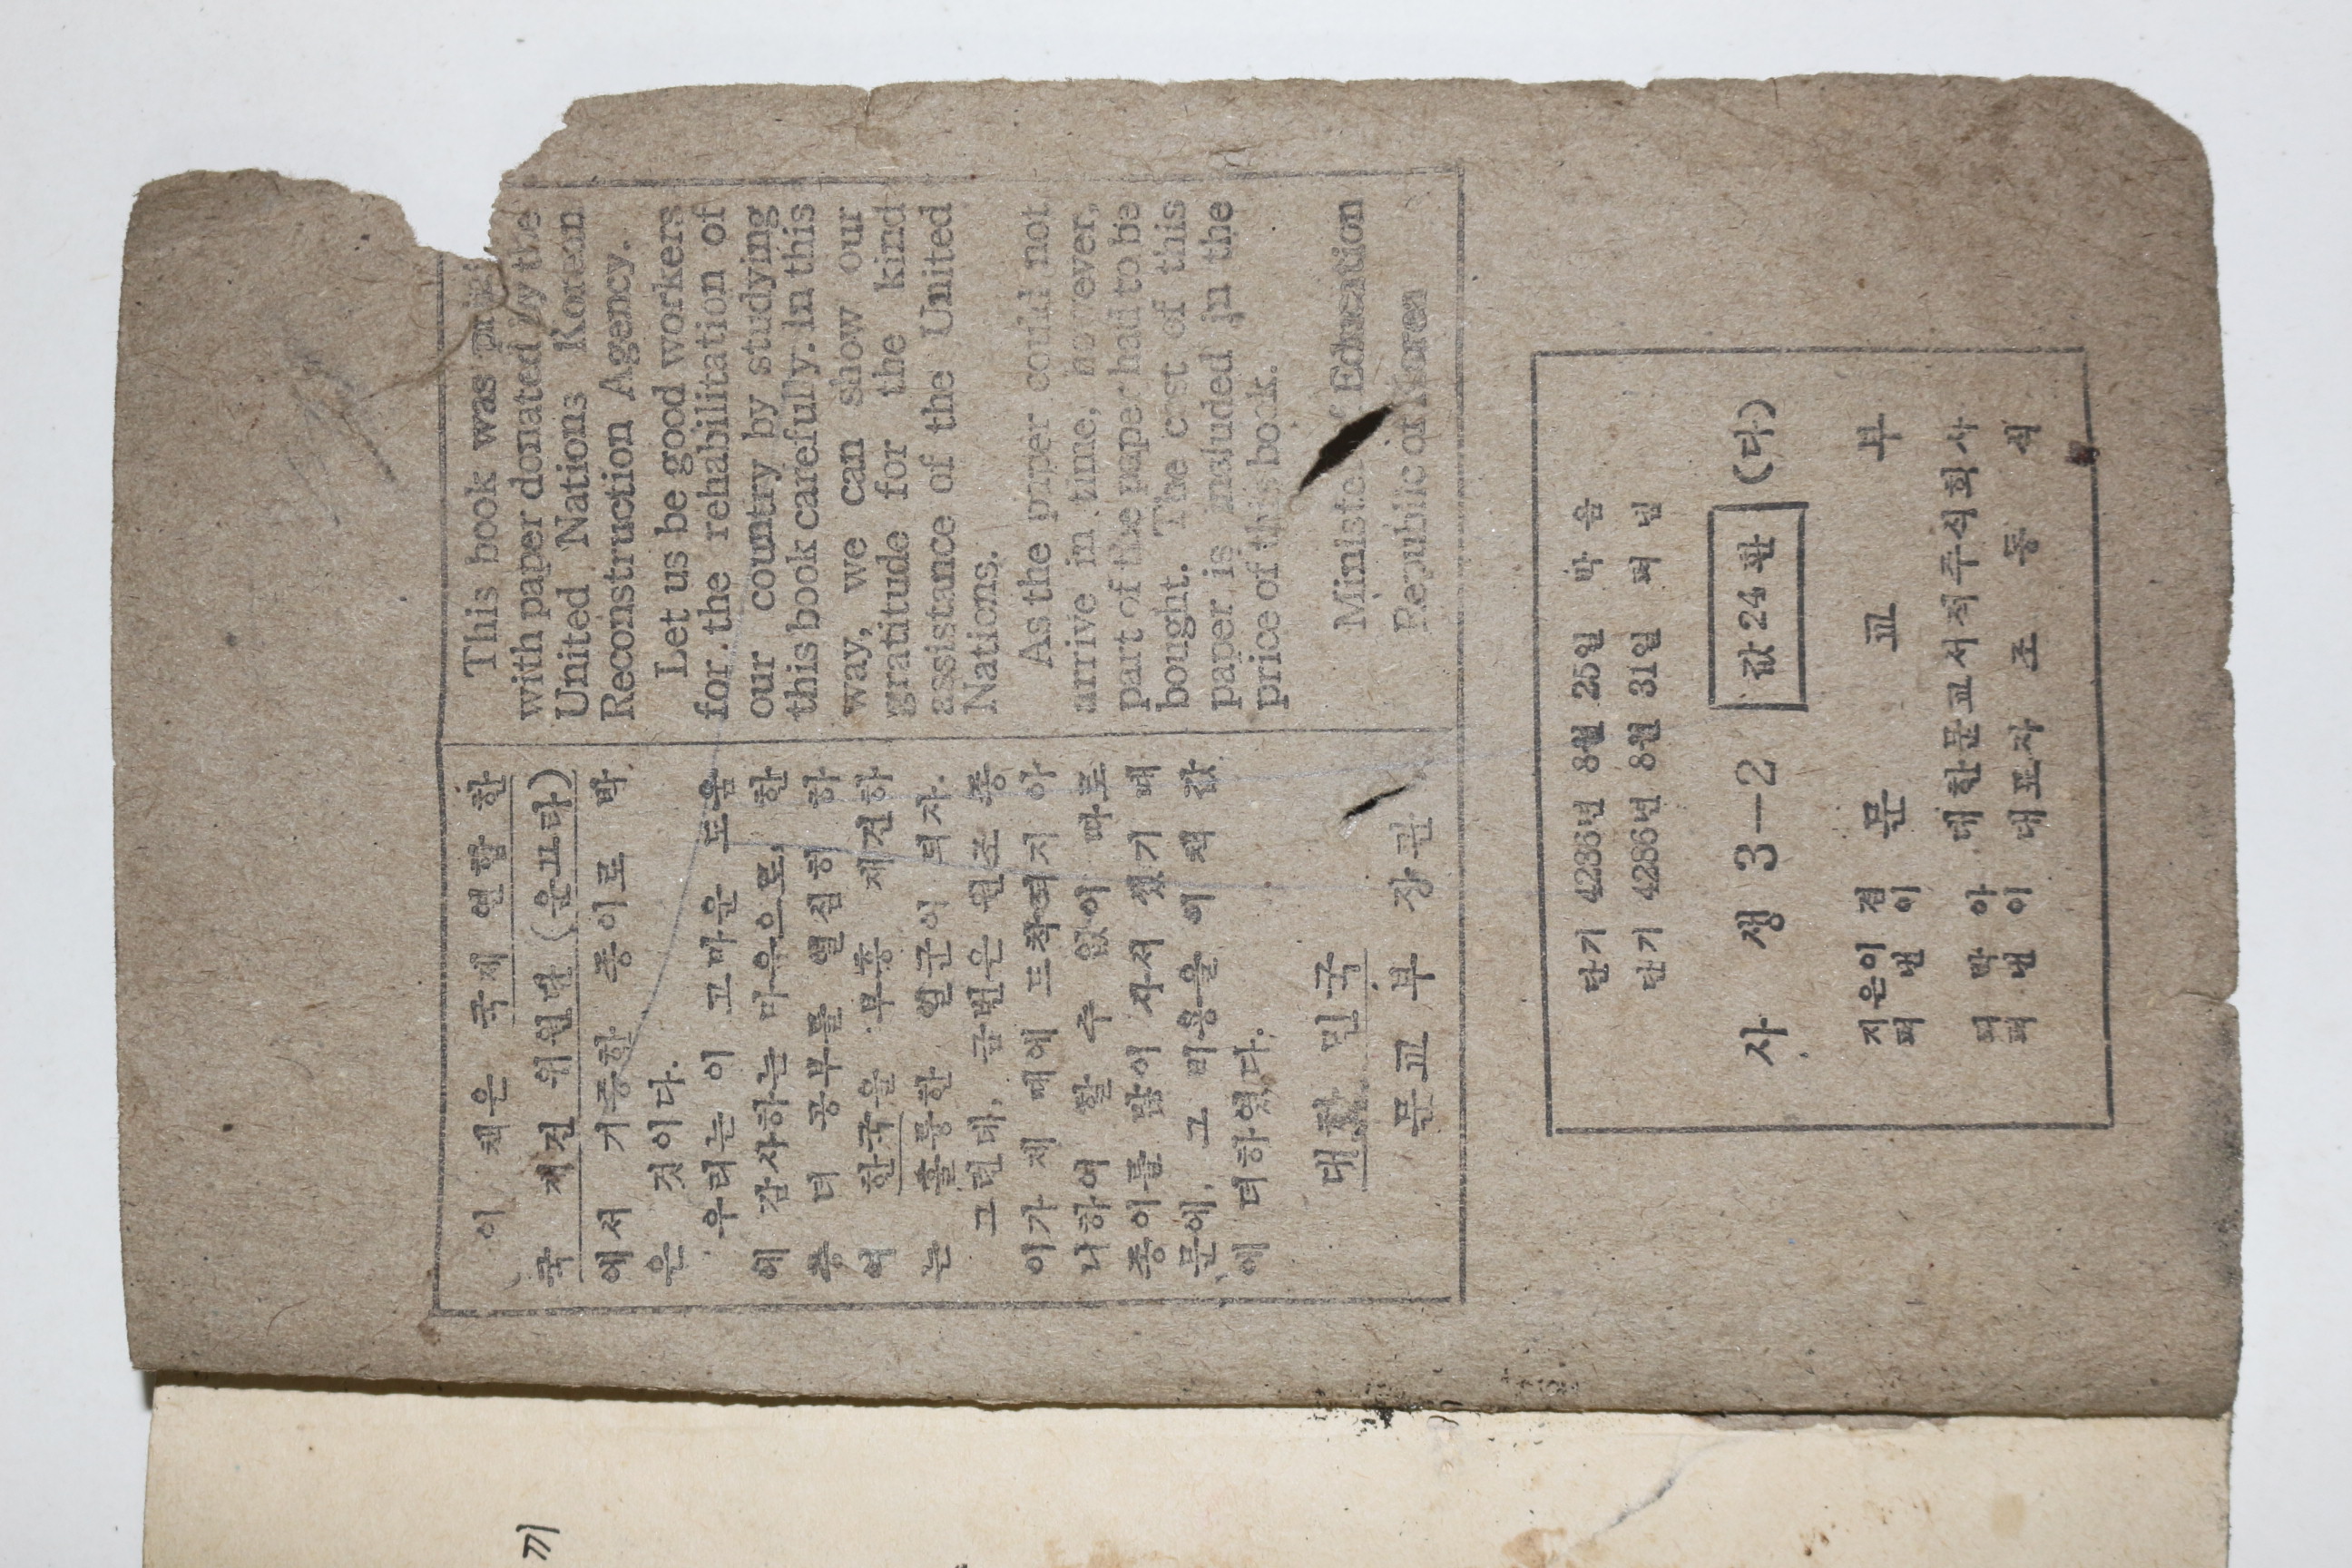 이 책은 국제 연합 한
국 재건 위원단 (운끄라)
에서 기증한 종이로 박
은 것이다.
우리는 이 고마운 도움
에 감사하는 마음으로, 한
층 더 공부를 열심히 하
여 한국을 부흥 재건하
는 훌륭한 일군이 되자.
그런데, 금번은 원조 종
이가 제 때에 도착되지 아
니하여 할 수 없이 따로
종이를 많이 사서 썼기 때
문에, 그 비용을 이 책 값
에 더하였다.
대한 민국
문교부 장관
This book was
with paper donated by the
United Nations Korean
Reconstruction Agency.
Let us be good workers
for the rehabilitation of
our country by studying
this book carefully. in this
way, we can show our
gratitude for the kind
assistance of the United
Nations.
As the paper could not
arrive in time, however,
part of the paper had to be
bought. The cost of this
paper is included in the
price of this book.
Minister of Education
Republic of Korea
단기 4286년 8월 25일 박음
단기 4286년 8월 31일 펴냄
사 생 3—2 값 24환 (다)
지은이 겸
펴낸이 문교부
박아
펴낸이 대한문교서적주식회사
대표자 조동식
끼